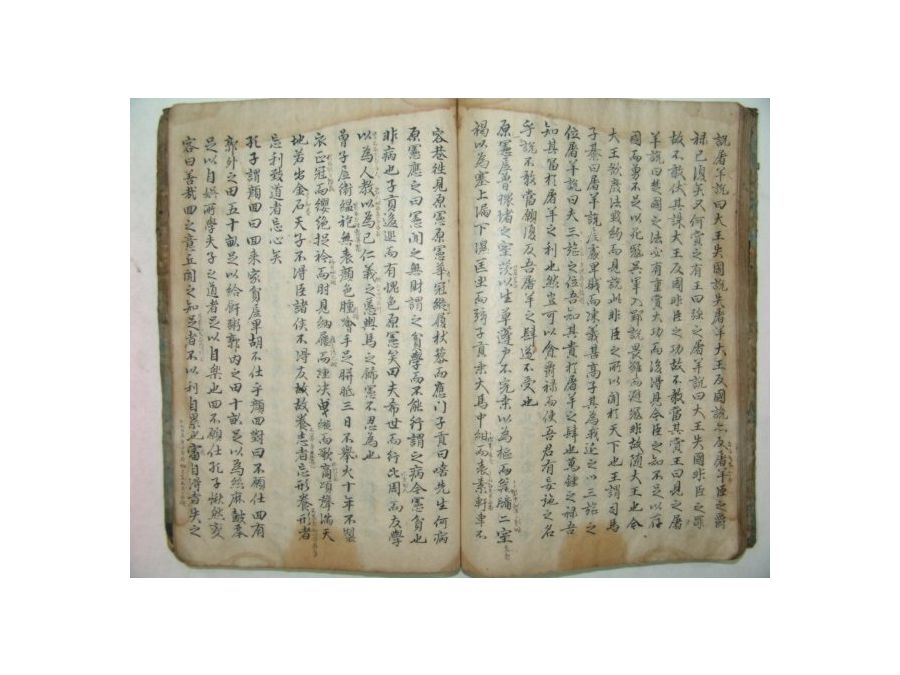 說屠羊說曰大王失國說失屠羊大王反國說亦反屠羊臣之爵
祿已復矣又何賞之有王曰强之屠羊說曰大王失國非臣之罪
故不敢伏其誅大王反國非臣之功故不敢當其賞王曰見之屠
羊說曰楚國之法必有重賞大功而後得見今臣之知不足以存
國而勇不足以死寇吳軍入郢說畏難而避寇非故隨大王也今
大王欲廢法毁約而見說此非臣之所以聞於天下也王謂司馬
子綦曰屠羊說居處卑賤而陳義甚高子其為我延之以三旌之
位屠羊說曰夫三旌之位吾知其貴於屠羊之肆也萬鍾之祿吾
知其富於屠羊之利也然豈可以貪爵祿而使吾君有妄施之名
乎說不敢當願復反吾屠羊之肆遂不受也
原憲居魯環堵之室茨以生草蓬戶不完桑以為樞而瓮牖二室
褐以為塞上漏下濕匡坐而子貢乘大馬中紺而表素軒車不
容巷往見原憲原憲華冠縰履杖藜而應門子貢曰嘻先生何病
原憲應之曰憲聞之無財謂之貧學而不能行謂之病今憲貧也
非病也子貢逡巡而有愧色原憲笑曰夫希世而行比周而友學
以為人教以為己仁義之慝輿馬之飾憲不忍為也
曾子居衛縕袍無表顏色腫噲手足胼胝三日不擧火十年不製
衣正冠而纓絶捉衿而肘見納屨而踵决曳縰而歌商頌聲滿天
地若出金石天子不得臣諸侯不得友故養志者忘形養形者
忘利致道者忘心矣
孔子謂顏回曰回來家貧居卑胡不仕乎顏回對曰不願仕回有
郭外之田五十畝足以給飦粥郭內之田十畝足以為絲麻鼓琴
足以自娛所學夫子之道者足以自樂也回不願仕孔子愀然變
容曰善哉回之意丘聞之知足者不以利自累也審自得者失之